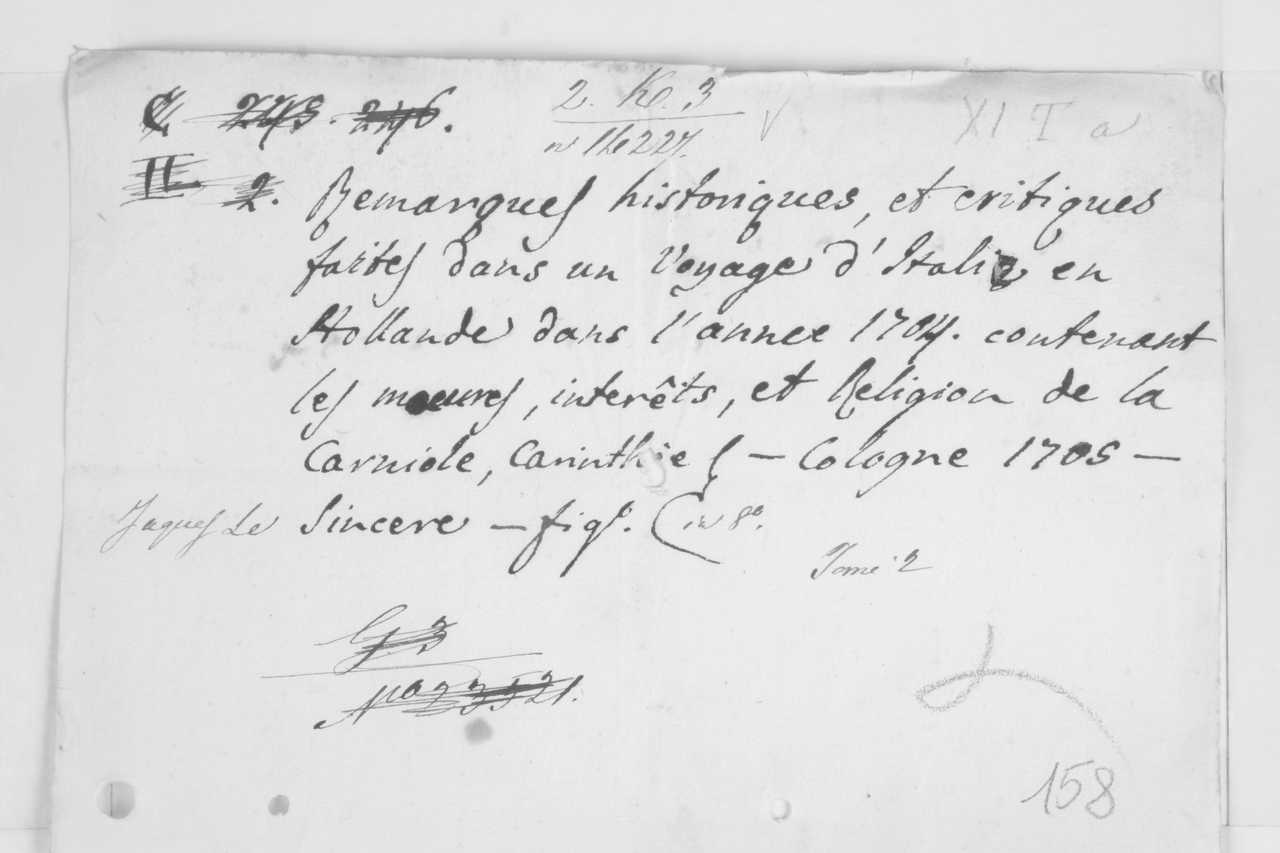 2. K. 3
XI T a
n 16227.
2. Remarques historiques, et critiques
faites dans un Voyage d'Italie en
Hollande dans l'annee 1704. contenant
les moeures, interêts, et Religion de la
Carniole, Carinthie &c — Cologne 1705 —
Jaques Le Sincere — fig. (in 8º.
Tome 2
G 3
Nro 23521.
158